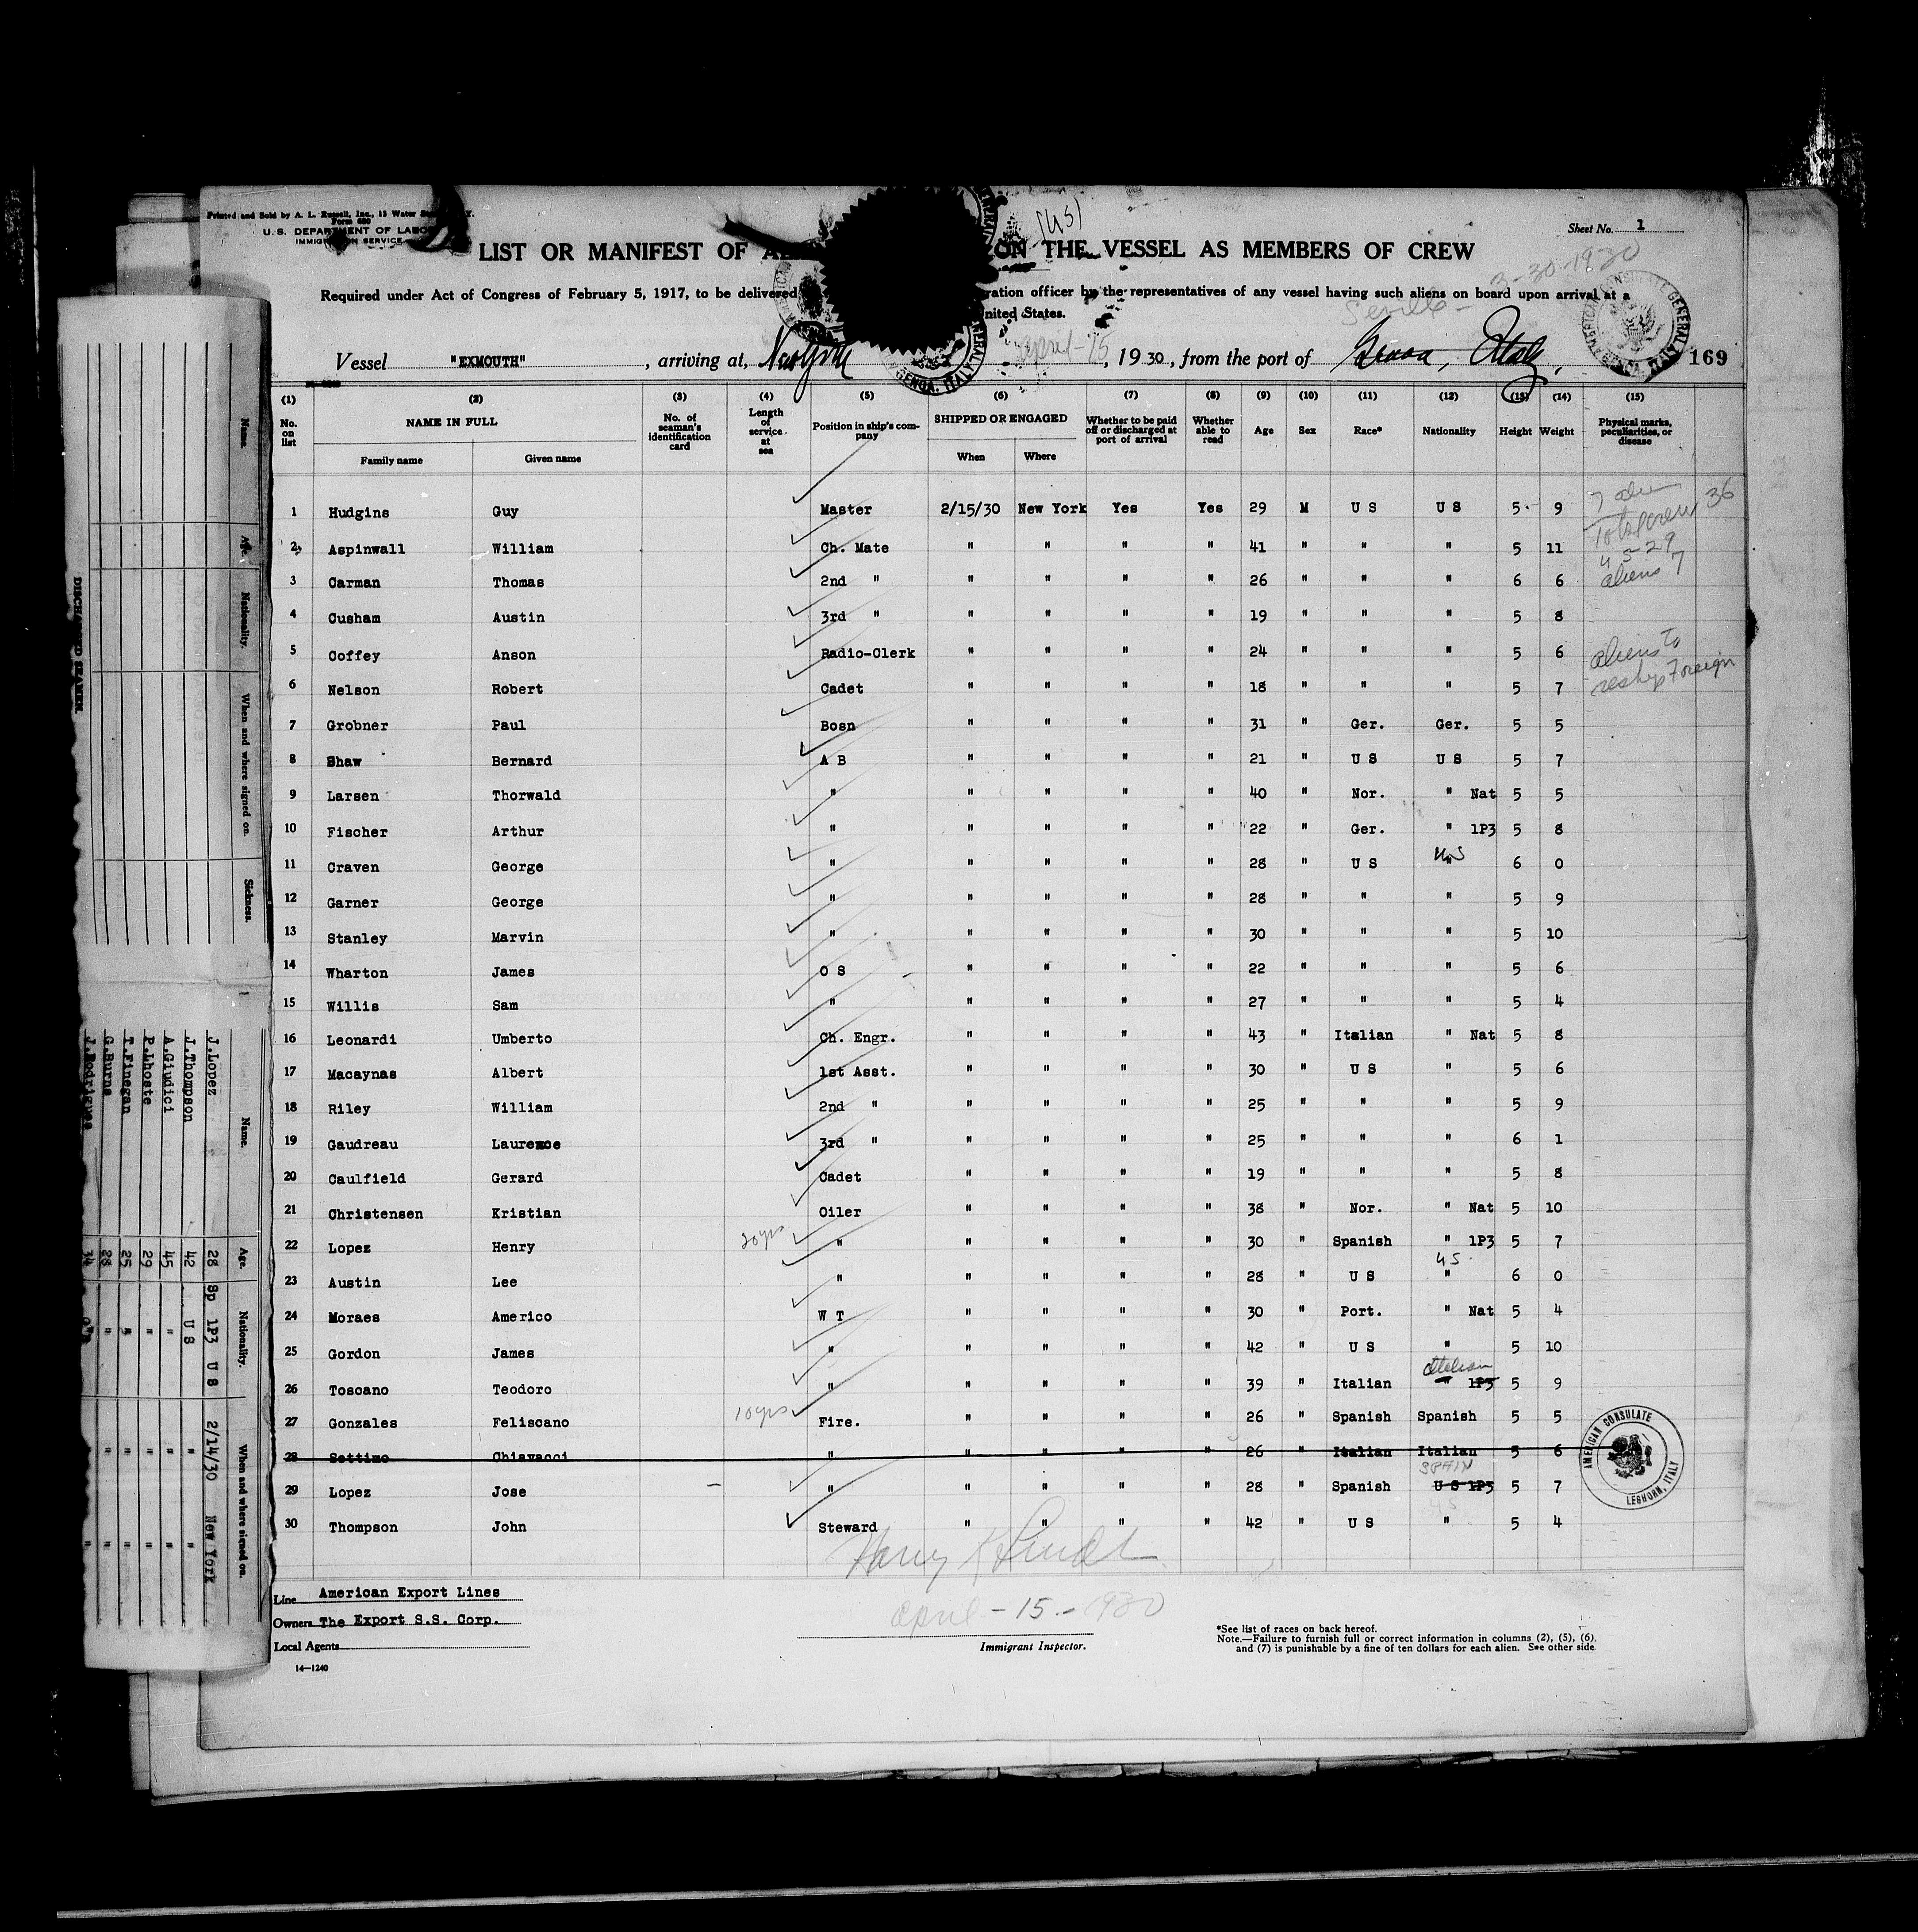 Printed and Sold by A. L. Russell, Inc., 13 Water
Form 680
U. S. DEPARTMENT OF LABOR
IMMIGRATION SERVICE
(US)
Sheet No. 1
LIST OR MANIFEST OF ON THE VESSEL AS MEMBERS OF CREW
3-30-1930
Required under Act of Congress of February 5, 1917, to be delivered ration officer by the representatives of any vessel having such aliens on board upon arrival at a
nited States.
Seville
Vessel "EXMOUTH", arriving at, New York April-15, 1930, from the port of Genoa, Italy, 169
GENOA, ITALY
AMERICAN CONSULATE GENERAL
(1) (2) (3) (4) (5) (6) (7) (8) (9) (10) (11) (12) (13) (14) (15)
No. on list NAME IN FULL No. of seaman's identification card Length of service at sea Position in ship's company SHIPPED OR ENGAGED Whether to be paid off or discharged at port of arrival Whether able to read Age Sex Race* Nationality Height Weight Physical marks, peculiarities, or disease
Family name Given name When Where
1 Hudgins Guy Master 2/15/30 New York Yes Yes 29 M U S U S 5 9
2 Aspinwall William Ch. Mate " " " " 41 " " " 5 11
3 Carman Thomas 2nd " " " " " 26 " " " 6 6
4 Cusham Austin 3rd " " " " " 19 " " " 5 8
5 Coffey Anson Radio-Clerk " " " " 24 " " " 5 6
6 Nelson Robert Cadet " " " " 18 " " " 5 7
7 Grobner Paul Bosn " " " " 31 " Ger. Ger. 5 5
8 Shaw Bernard A B " " " " 21 " U S U S 5 7
9 Larsen Thorwald " " " " " 40 " Nor. " Nat 5 5
10 Fischer Arthur " " " " " 22 " Ger. " 1P3 5 8
11 Craven George " " " " " 28 " U S US " 6 0
12 Garner George " " " " " 28 " " " 5 9
13 Stanley Marvin " " " " " 30 " " " 5 10
14 Wharton James O S " " " " 22 " " " 5 6
15 Willis Sam " " " " " 27 " " " 5 4
16 Leonardi Umberto Ch. Engr. " " " " 43 " Italian " Nat 5 8
17 Macaynas Albert 1st Asst. " " " " 30 " U S " 5 6
18 Riley William 2nd " " " " " 25 " " " 5 9
19 Gaudreau Laurence 3rd " " " " " 25 " " " 6 1
20 Caulfield Gerard Cadet " " " " 19 " " " 5 8
21 Christensen Kristian Oiler " " " " 38 " Nor. " Nat 5 10
22 Lopez Henry 20 yrs " " " " " 30 " Spanish " 1P3 5 7
23 Austin Lee " " " " " 28 " U S US " 6 0
24 Moraes Americo W T " " " " 30 " Port. " Nat 5 4
25 Gordon James " " " " " 42 " U S " 5 10
26 Toscano Teodoro " " " " " 39 " Italian Italian " 1P3 5 9
27 Gonzales Feliscano 10 yrs Fire. " " " " 26 " Spanish Spanish 5 5
28 Settimo Chiavacci " " " " " 26 " Italian Italian 5 6
29 Lopez Jose " " " " " 28 " Spanish SPAIN U S 1P3 5 7
30 Thompson John Steward " " " " 42 " U S US " 5 4
7 alien
Total crew 36
US-29
aliens 7
aliens to
reship Foreign
AMERICAN CONSULATE
LEGHORN, ITALY
Line American Export Lines
Owners The Export S.S. Corp.
Local Agents
14—1240
April-15-1930
Immigrant Inspector.
*See list of races on back hereof.
Note.—Failure to furnish full or correct information in columns (2), (5), (6), and (7) is punishable by a fine of ten dollars for each alien. See other side
DISCHARGED SEAMEN.
Name. Age. Nationality. When and where signed on. Sickness.
Name. Age. Nationality. When and where signed on.
J.Lopez 28 Sp 1P3 U S 2/14/30 New York
J.Thompson 42 U S " "
A.Giudici 45 " " "
P.Lhoste 29 " " "
T.Finegan 25 " " "
G.Burns 28 " " "
J.Rodrigues 34